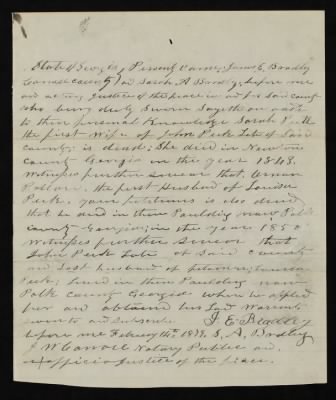 State of Georgia, Personly came, James E. Bradly
Carroll County and Sarah A Bradly, before me
an acting Justice of the peace in and for said county
who being duly Sworn Sayeth on oath
to their personal Knowledge Sarah Peek
the first Wife of John Peek late of said
county; is dead; She died in Newton
county Georgia in the year 1843.
Witnesses further swear that,
the first Husband of Louisa
Peek, your petitioner is also dead
that he died in then Paulding now Polk
county Georgia; in the year 1850
Witnesses further Swear that
John Peek late of said county
and last husband of petitioner; Louisa
Peek; lived in then Paulding now
Polk county Georgia where he applied
for and obtained his Land Warrant
sworn to and subscribed J. E. Bradley
before me February 14th, S. A. Bradley
J W Carroll Notary Public and
ex officio Justice of the peace.